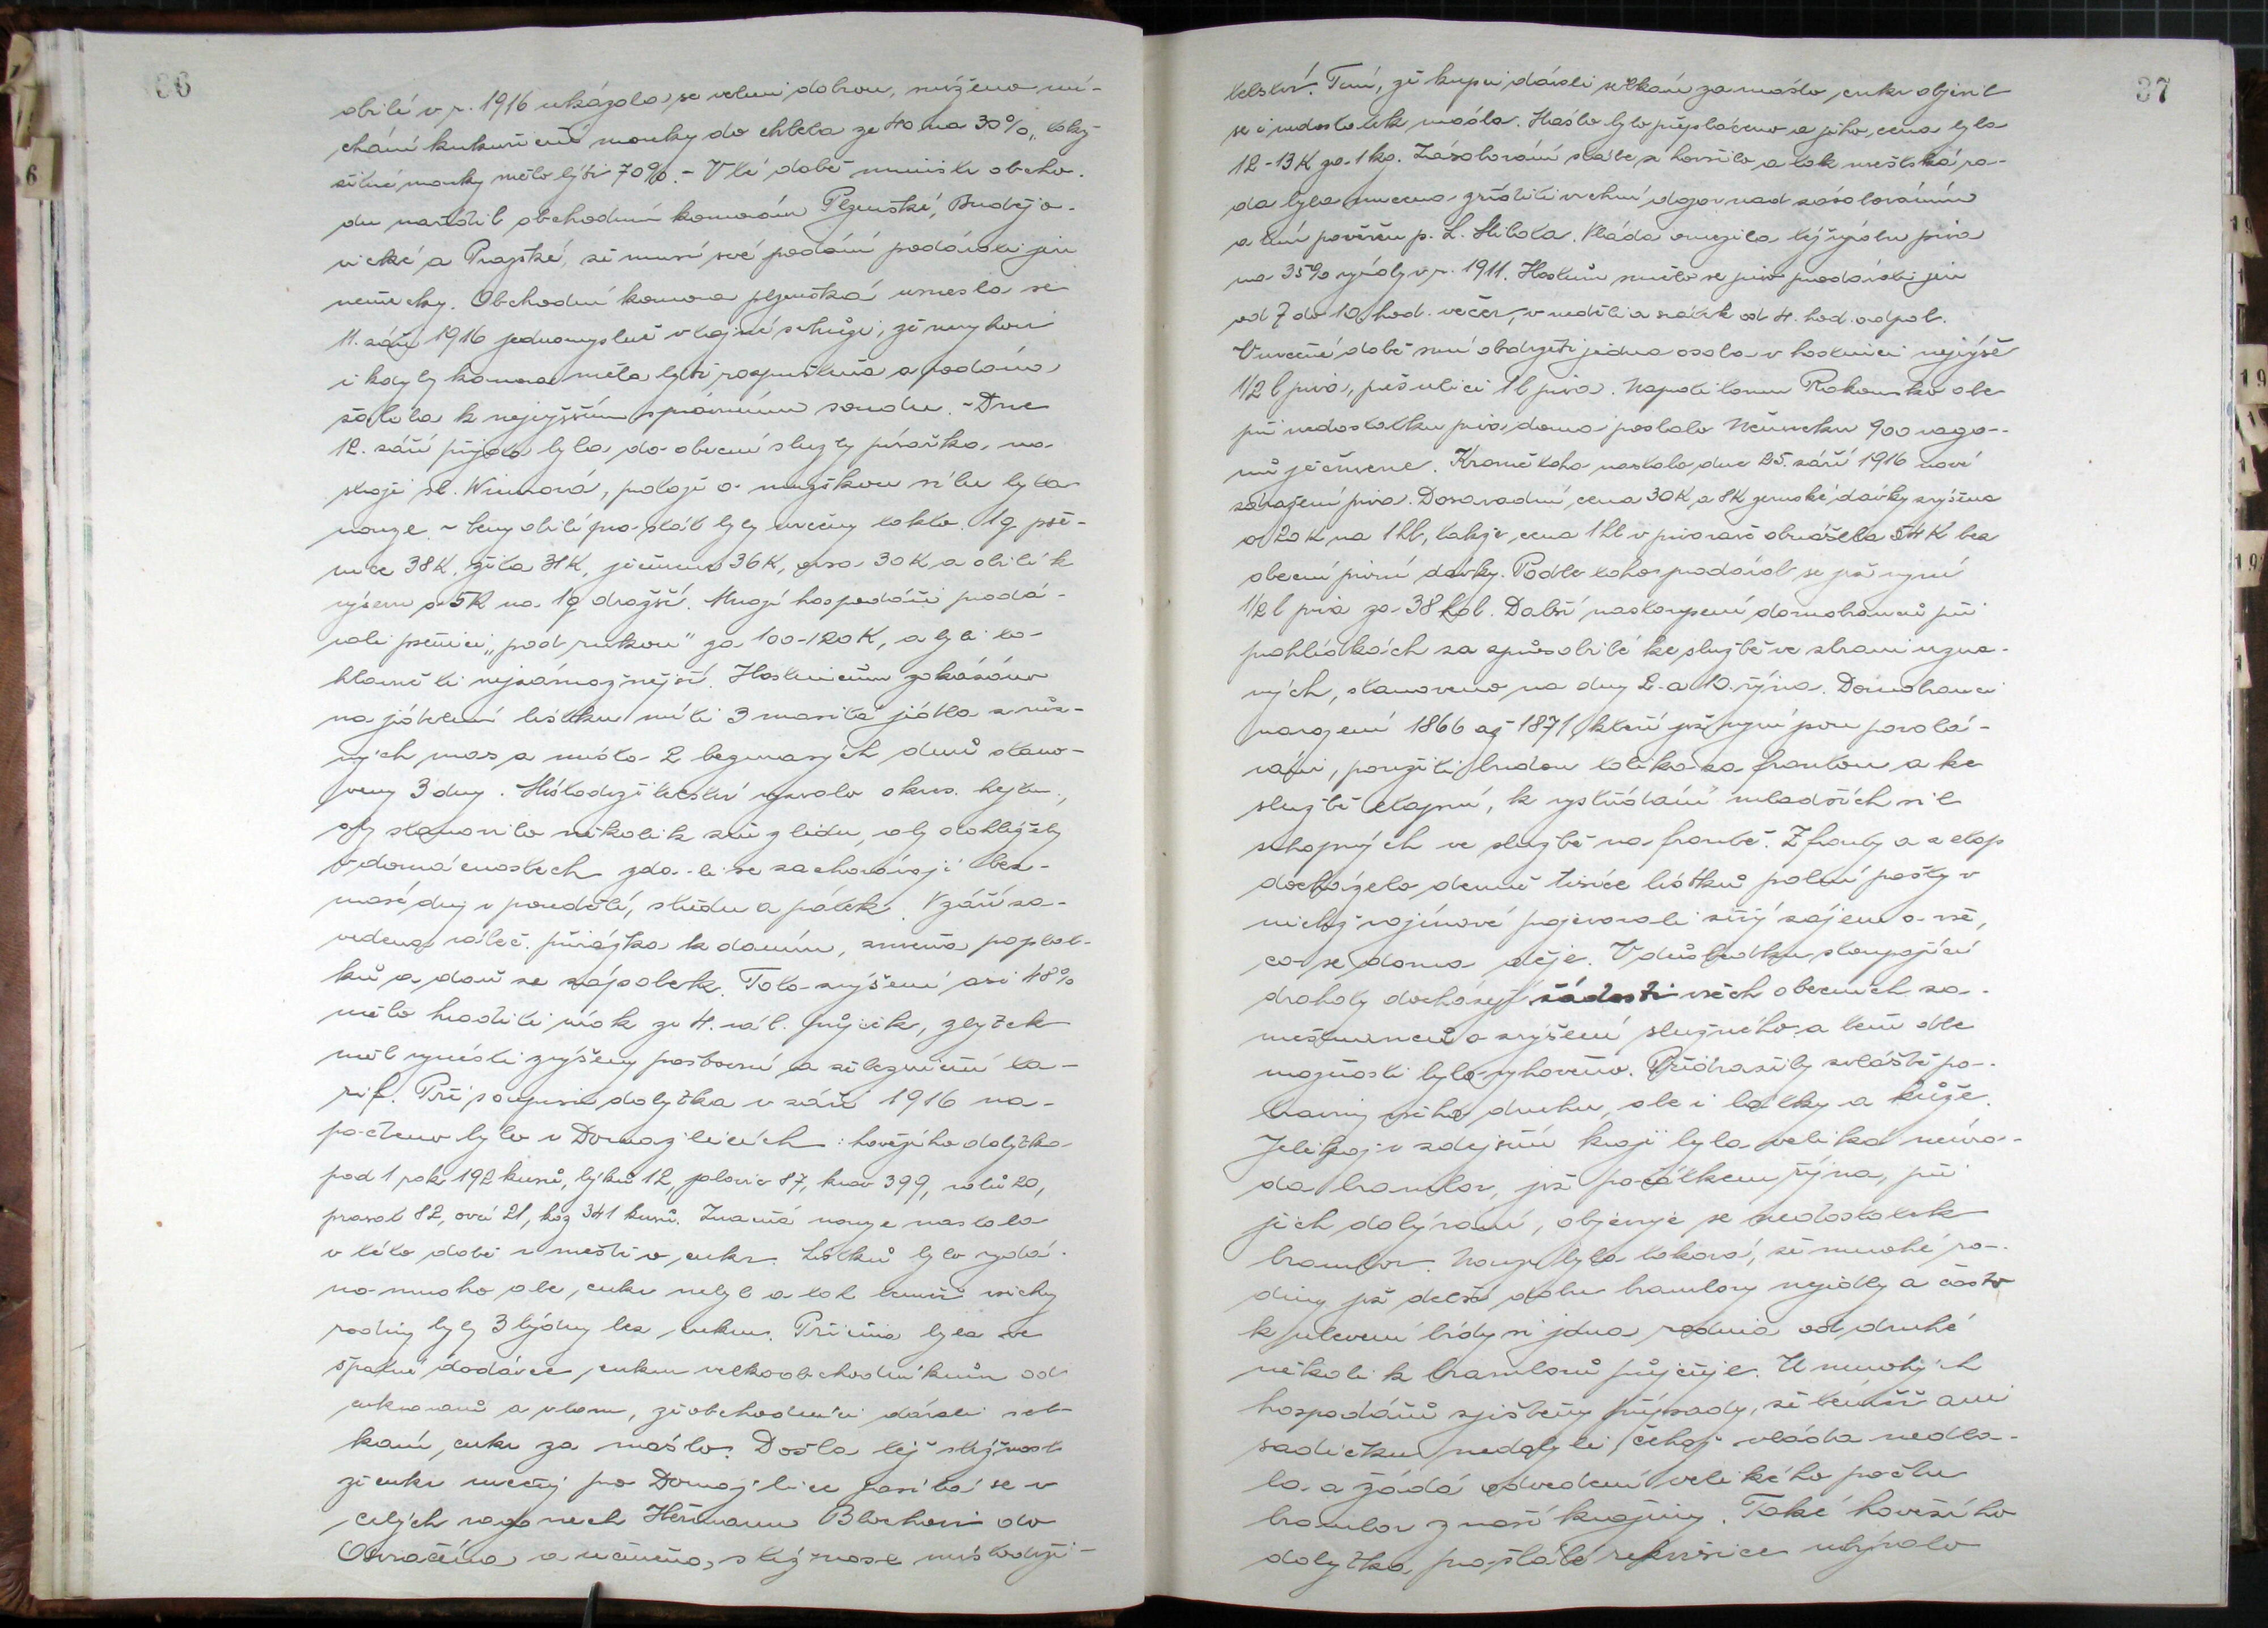 86
obilí v r. 1916 ukázalo se velmi dobrou, sníženo mí-
chání kukuřičné mouky do chleba ze 40 na 30%, takže
žitné mouky mělo býti 70%. - V té době ministr obcho-
du nařídil obchodním komorám Plzeňské, Budějo-
vické a Pražské, že musí své podání podávati jen
německy. Obchodní komora plzeňská usnesla se
11. září 1916 jednomyslně v tajné schůzi, že nevyhoví
i kdyby komora měla býti rozpuštěna a podána
žaloba k nejvyššímu správnímu soudu. - Dne
12. září přijata byla do obecní služby písařka, na-
stoje sl. Wimnová, potoje o mužskou sílu byla
nouze. - Ceny obilí pro stát byly určeny takto: 1q pše-
nice 38K, žita 31K, ječmene 36K, ovsa 30K a obilí k
výsevu o 5K na 1q dražší. Mnozí hospodáři prodá-
vali pšenici "pod rukou" za 100-120K, a byli to
hlavně ti nejzámožnější. Hostincům zakázáno
na jídelním lístku míti 3 masitá jídla z růz-
ných mas a místo 2 bezmasých dnů stano-
veny 3 dny. Místodržitelství vyzvalo okres. hejtm.,
aby stanovilo několik žen z lidu, aby dohlížely
v domácnostech zda-li se zachovávají bez-
masé dny v pondělí, středu a pátek. V září za-
vedena váleč. přirážka k daním, změna poplat-
ků a daň ze zápalek. Toto zvýšení asi 48%
mělo hraditi úrok ze 4. vál. půjček, zbytek
měl vynésti zvýšený poštovní a železniční ta-
rif. Při soupisu dobytka v září 1916 na-
počteno bylo v Domažlicích: hovězího dobytka
pod 1 rok 192 kusů, býků 12, jalovic 87, krav 399, volů 20,
prasat 82, ovcí 21, koz 341 kusů. Značná nouze nastala
v této době v městě o cukr. Lístků bylo vydá-
no mnoho ale cukr nebyl a tak téměř všechny
rodiny byly 3 týdny bez cukru. Příčina byla ve
špatné dodávce cukru velkoobchodníkům od
cukrovarů a v tom, že obchodníci dávali set-
kání, cukr za máslo. Došla též stížnost
že cukr určený pro Domažlice zasílá se v
celých vagonech Heřmanu Blochovi do
Osvračína a učiněna stížnost místodrži-
87
telství. Tím, že kupci dávali setkání za máslo cukr objevil
se i nedostatek másla. Máslo bylo přepláceno a jeho cena byla
12-13 K za 1 kg. Zásobování stále se horšilo a tak městská ra-
da byla nucena zříditi vrchní dozor nad zásobováním
a tím pověřen p. L. Hlibota. Vláda omezila též výrobu piva
na 35% výroby v r. 1911. Hostům smělo se pivo prodávati jen
od 7 do 10 hod. večer, v neděli a svátek od 4. hod. odpol.
V určené době smí obdržeti jedna osoba v hostinci nejvýše
1/2 l piva, přes ulici 1 l piva. Naproti tomu Rakousko ale
při nedostatku piva doma poslalo Německu 900 vago-
nů ječmene. Kromě toho nastalo dne 25. září 1916 nové
zdražení piva. Dosavadní cena 30K a 8K zemské dávky zvýšena
o 20 K na 1 hl, takže cena 1 hl v pivovaře obnášela 54 K bez
obecní pivní dávky. Podle toho prodával se již nyní
1/2 l piva za 38 hal. Další nastoupení domobranců při
prohlídkách za způsobilé ke službě ve zbrani uzna-
ných, stanoveno na dny 2. a 10. října. Domobranci
narození 1866 až 1871, kteří již nyní jsou povolá-
váni, použiti budou toliko za frontou a ke
službě etapní, k vystřídání mladších sil
schopných ve službě na frontě. Z fronty a z etap
docházelo denně tisíce lístků polní pošty v
nichž vojínové projevovali živý zájem o vše,
co se doma děje. V důsledku stoupající
drahoty docházejí žádosti všech obecních za-
městnanců o zvýšení služného a těm dle
možnosti bylo vyhověno. Přídrasily zvláště po-
traviny všeho druhu, ale i látky a kůže.
Jelikož v zdejším kraji byla veliká neúro-
da brambor, již počátkem října, při
jich dobývání, objevuje se nedostatek
brambor. Nouze byla taková, že mnohé ro-
diny již delší dobu brambory nejedly a často
k ulevení bídy si jedna rodina od druhé
několik bramborů půjčuje. U mnohých
hospodářů zjištěny případy, že téměř ani
sadičku nedobyli, čehož vláda nedba-
la a žádá odvedení velikého počtu
brambor z naší krajiny. Také hovězího
dobytka pro stálé rekvisice ubývalo